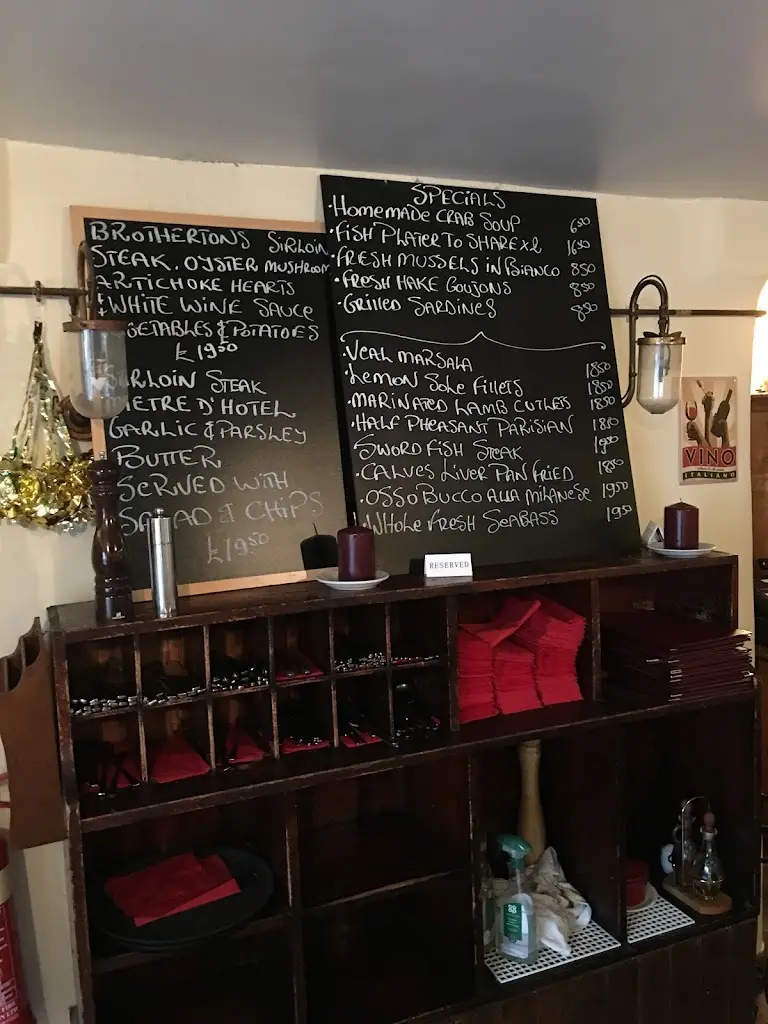 BROTHERTONS SIRLOIN
STEAK, OYSTER MUSHROOM
ARTICHOKE HEARTS
& WHITE WINE SAUCE
VEGETABLES & POTATOES
£19.50
SIRLOIN STEAK
METRE D'HOTEL
GARLIC & PARSLEY
BUTTER
SERVED WITH
SALAD & CHIPS
£19.50
SPECIALS
·HOMEMADE CRAB SOUP 6.50
·FISH PLATER TO SHARE x2 16.50
·FRESH MUSSELS IN BIANCO 8.50
·FRESH HAKE GOUJONS 8.50
·GRILLED SARDINES 8.50
·VEAL MARSALA 18.50
·LEMON SOLE FILLETS 18.50
·MARINATED LAMB CUTLETS 18.50
·HALF PHEASANT PARISIAN 18.50
SWORD FISH STEAK
·CALVES LIVER PAN FRIED 18.50
·OSSO BUCCO ALLA MILANESE 19.50
·WHOLE FRESH SEABASS 19.50
RESERVED
VINO
ITALIANO